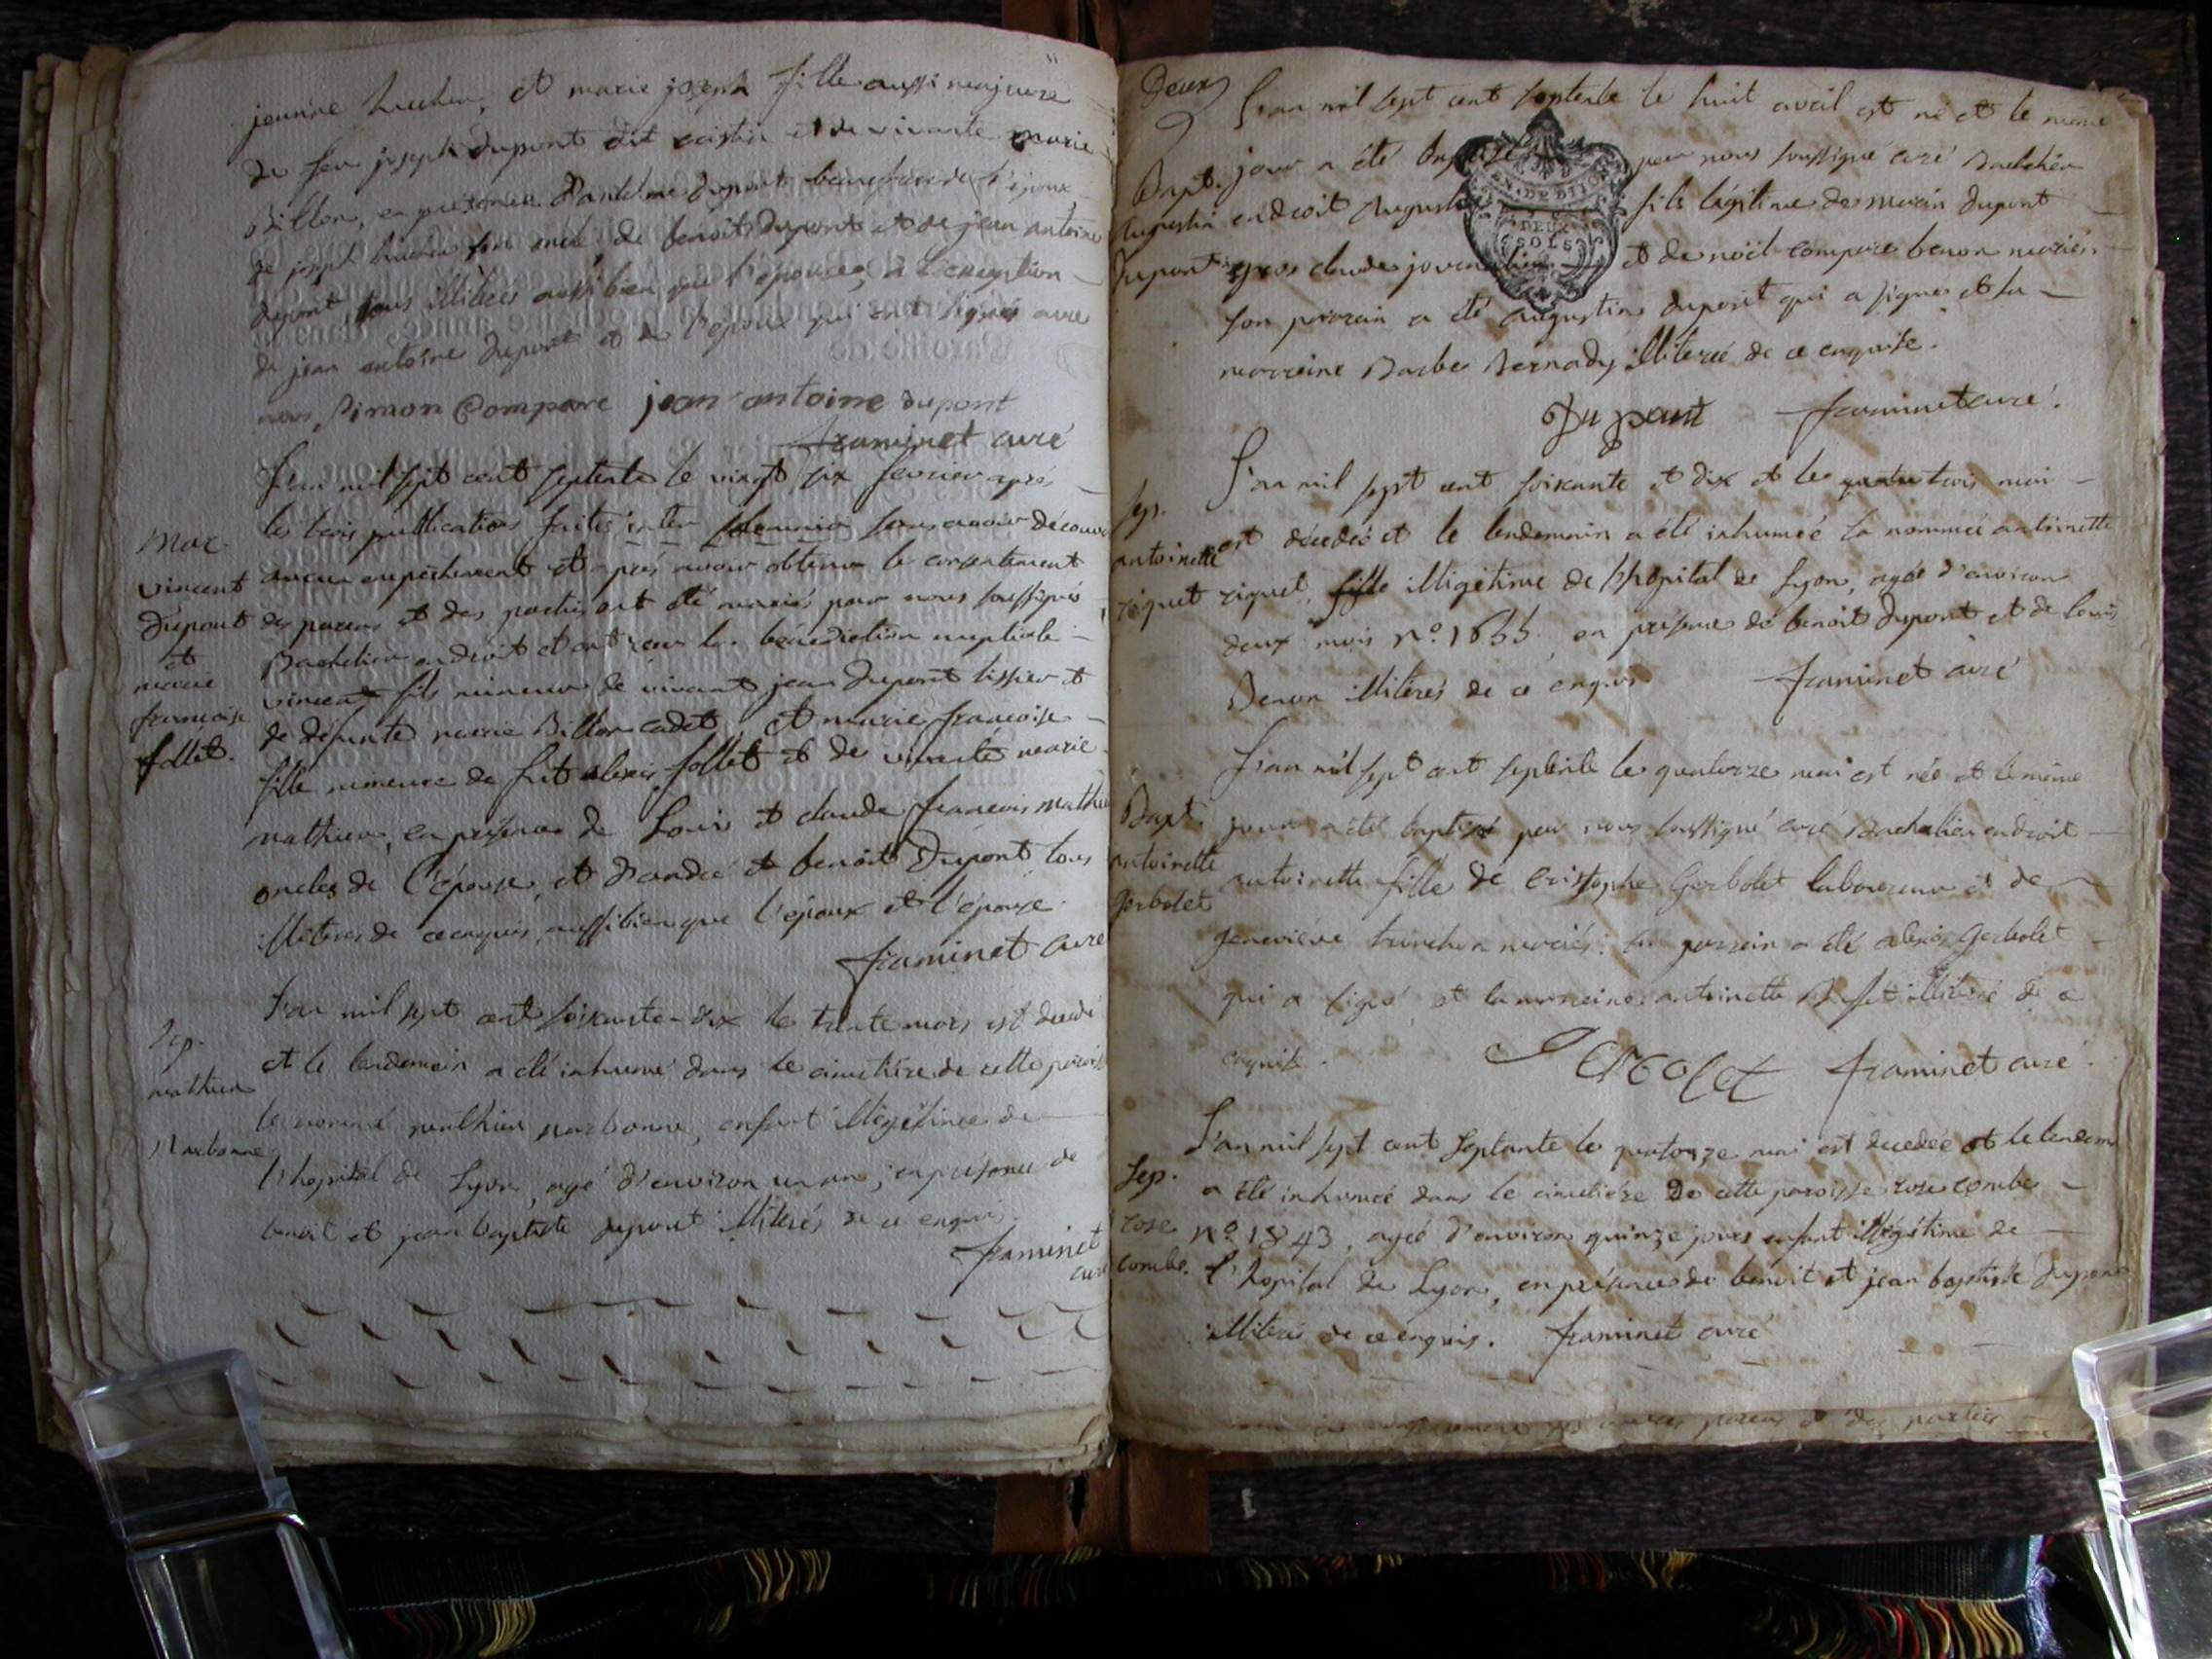 jeanne huchon, et marie joseph fille aussi majeure
de feu joseph dupont dit cristin et de vivante marie
Billon, en présence d'antelme dupont beaufrere de l'époux
de joseph huchon son oncle de benoit dupont et de jean antoine
dupont, tous illiterés aussi bien que l'épouse, à l'exception
de jean antoine dupont et de l'époux qui ont signés avec
nous, Simon Compare jean antoine dupont
framinet curé
L'an mil sept cent septente le vingt six fevrier aprés
les trois publications faites inter solemnia sans avoir découvert
aucun empêchement et aprés avoir obtenu le consentement
des parens et des parties ont été mariés par nous soussigné
Bachelier en droit et ont reçu la bénédiction nuptiale
vincent fils mineur de vivant jean dupont tissier et
de défunte marie Billon cadet, et marie françoise
fille mineure de fut alexis follet et de vivante marie
mathieu, en présence de Louis et claude françois mathieu
oncles de l'épouse, et d'andré et benoit Dupont tous
illiterés de ce enquis, aussi bien que l'époux et l'épouse.
framinet curé
Mar.
vincent
Dupont
et
marie
françoise
follet.
L'an mil sept cent soixante-dix le trente mars est decedé
et le lendemain a été inhumé dans le cimetière de cette paroisse
le nommé mathieu narbonne, enfant illégitime de
l'hopital de Lyon, agé d'environ un an, en présence de
benoit et jean baptiste dupont illiterés de ce enquis.
framinet
curé
Sep.
mathieu
Narbonne
Deux
L'an mil sept cent septente le huit avril est né et le même
jour a été baptisé par nous soussigné curé Bachelier
en droit Augustin fils légitime de marin dupont
gros claude et de noël compare benon mariés
son parrain a été augustin dupont qui a signé et la
marraine Barbe Bernady illiterée de ce enquise.
Dupont framinet curé.
Bapt.
Augustin
Dupont
L'an mil sept cent soixante et dix et le trois mai
est décédée et le lendemain a été inhumée la nommée antoinette
riquet, fille illigétime de l'hôpital de Lyon, agée d'environ
deux mois n° 1655, en présence de benoit dupont et de louis
Benon illiterés de ce enquis. framinet curé
Sep.
antoinette
riquet
L'an mil sept cent septente le quatorze mai est née et le même
jour a été baptisé par nous soussigné curé Bachelier en droit
antoinette fille de Cristophe Gerbolet laboureur et de
genevieve huchon mariés: son parrain a été alexis Gerbolet
qui a signé, et la marraine antoinette illiterée de ce
enquise. Gerbolet framinet curé.
Bapt.
antoinette
Gerbolet
L'an mil sept cent septante le quatorze mai est decedée et le lendemain
a été inhumée dans le cimetière de cette paroisse rose combe
n° 1843, agée d'environ quinze jours enfant illégitime de
l'hopital de Lyon, en présence de benoit et jean baptiste dupont
illiterés de ce enquis. framinet curé
Sep.
rose
combe.
GEN. DE DIJON
DEUX
SOLS
parens et des parties